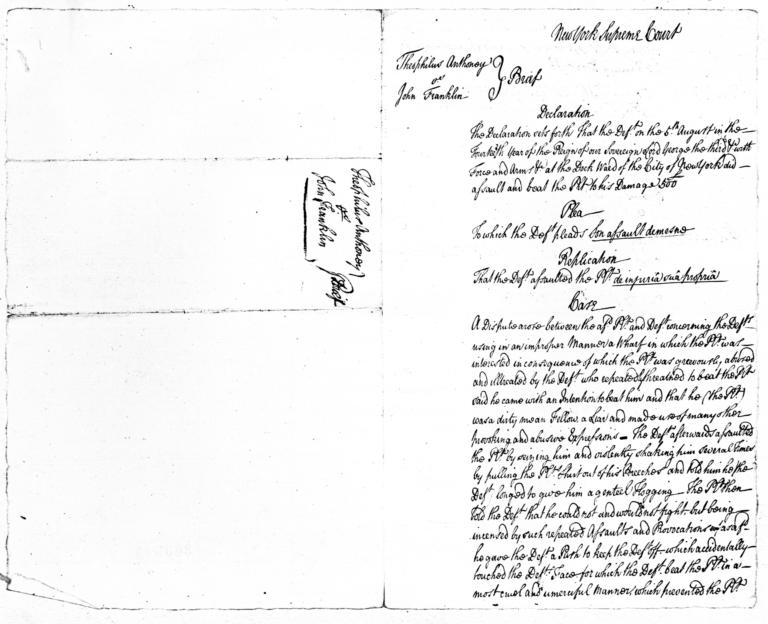 New York Supreme Court
Theophilus Anthony
vs
John Franklin
} Brief
Declaration
The Declaration sets forth That the Deft. on the 5th August in the
Fourteenth Year of the Reign of our Sovereign Lord George the third &c with
Force and Arms &c at the Dock Ward of the City of New York did
assault and beat the Plt to his Damage £500
Plea
To which the Deft pleads Son assault demesne
Replication
That the Deft assaulted the Plt. de injuriâ suâ propriâ
Case
A Dispute arose between the afd. Plt. and Deft concerning the Defts
using in an improper Manner a Wharf in which the Plt. was
interested in consequence of which the Plt was grevously abused
and illtreated by the Deft. who repeatedly threatned to beat the Plt
said he came with an Intention to beat him and that he (the Plt.)
was a dirty mean Fellow, a Liar and made use of many other
provoking and abusive Expressions — The Deft afterwards assaulted
the Plt by seizing him and violently shaking him several times
by pulling the Plts Shirt out of his Breeches and told him he the
Deft. longed to give him a genteel Flogging — The Plt then
told the Deft that he could not and would not fight but being
incensed by such repeated Assaults and Provocations as afd.
he gave the Deft a Push to keep the Deft off which accidentally
touched the Defts. Face for which the Deft. beat the Plt. in a
most cruel and unmerciful Manner, which prevented the Plt.
Theophilus Anthony
vs
John Franklin
} Brief